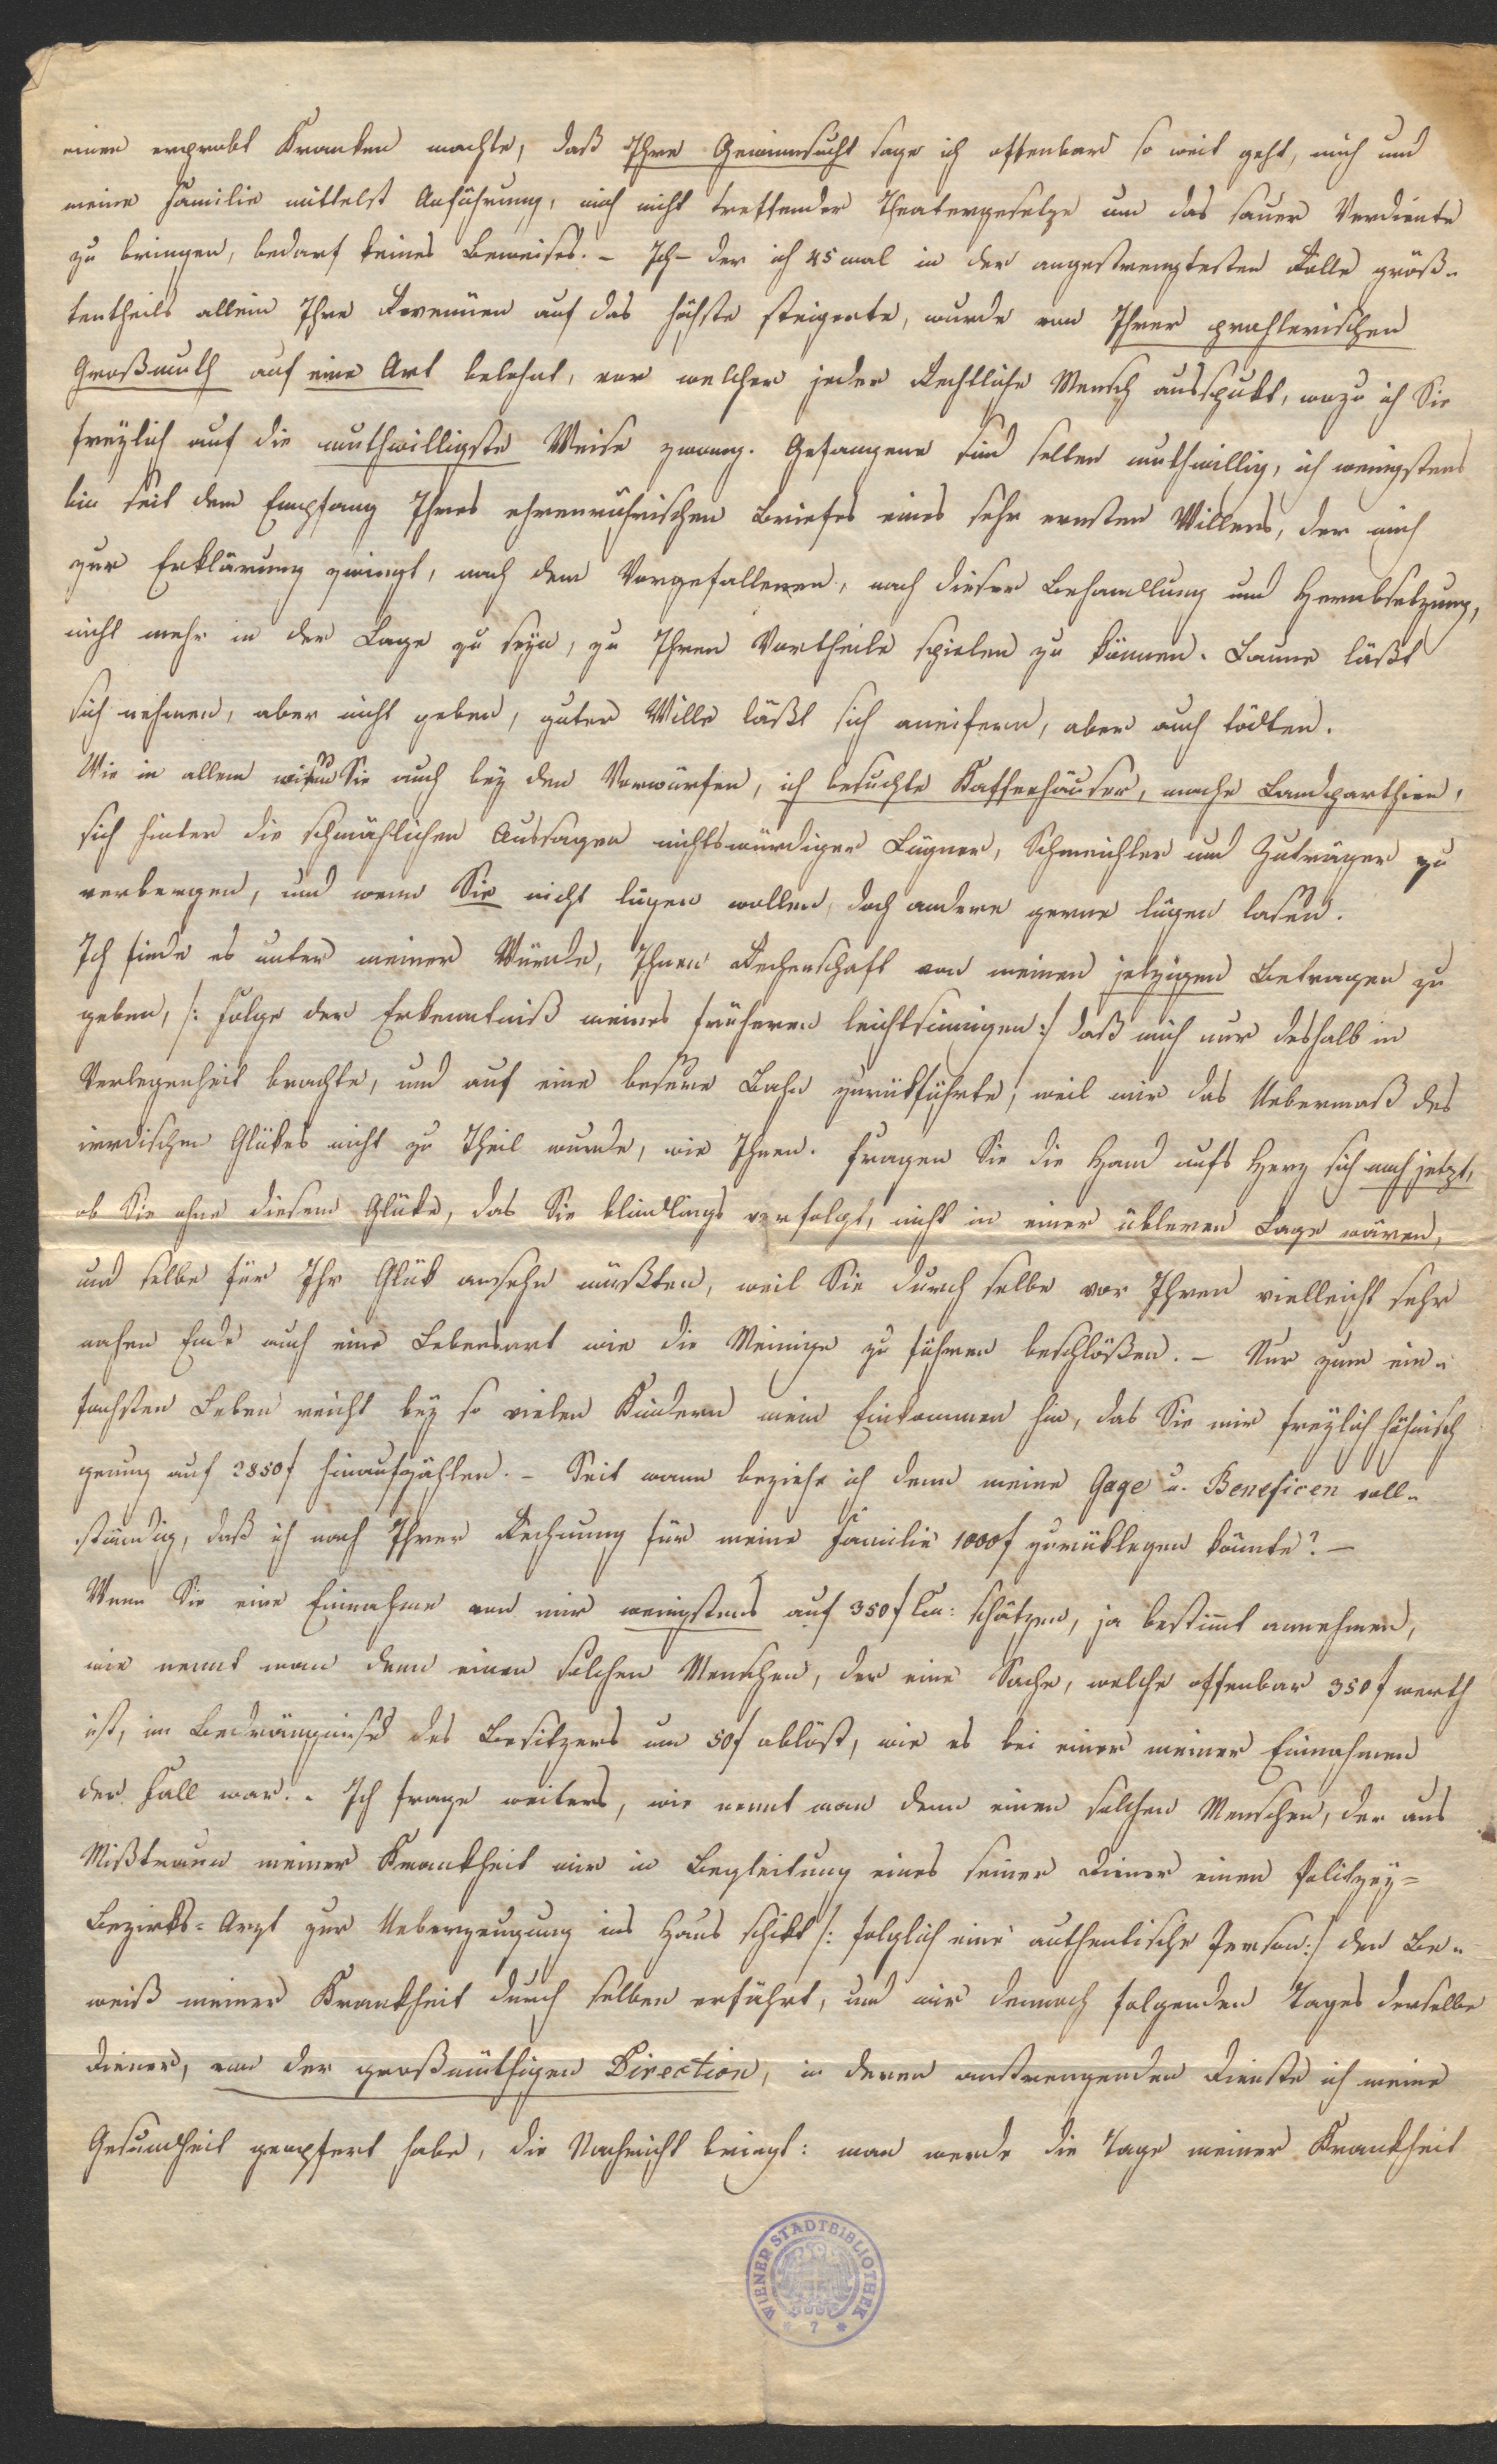 einen erprobt Kranken machte, daß Ihre Gewinnsucht sage ich offenbar so weit geht, mich und
meine Familie mittelst Anführung, mich nicht treffender Theatergesetze um das sauer Verdiente
zu bringen, bedarf keines Beweises. – Ich – der ich 45 mal in der angestrengtesten Rolle größ-
tentheils allein Ihre Revenüen auf das höchste steigerte, wurde von Ihrer prahlerischen
Großmuth auf eine Art belohnt, vor welcher jeder Rechtliche Mensch ausspukt, wozu ich Sie
freylich auf die muthwilligste Weise zwang. Gefangene sind selten muthwillig, ich wenigstens
bin seit dem Empfang Ihres ehrenrührischen Briefes eines sehr ernsten Willens, der mich
zur Erklärung zwingt, nach dem Vorgefallenen, nach dieser Behandlung und Herabsetzung,
nicht mehr in der Lage zu seyn, zu Ihren Vortheile spielen zu können. Laune läßt
sich nehmen, aber nicht geben, guter Wille läßt sich aneifern, aber auch tödten.
Wie in allem Sie auch bey den Vorwürfen, ich besuchte Kaffeehäuser, mache Landparthien,
sich hinter die schmählichen Aussagen nichtswürdiger Lügner, Schmeichler und Zuträger zu
verbergen, und wenn Sie nicht lügen wollen, doch andere gerne lügen lasen.
Ich finde es unter meiner Würde, Ihnen Rechenschaft von meinen jetzigen Betragen zu
geben, /: Folge der Erkenntniß meines früheren leichtsinnigen :/ daß mich nur deshalb in
Verlegenheit brachte, und auf eine besere Bahn zurükführte, weil mir das Uebermaß des
irrdischen Glükes nicht zu Theil wurde, wie Ihnen. Fragen Sie die Hand aufs Herz sich noch jetzt,
ob Sie ohne diesem Glüke, das Sie blindlings verfolgt, nicht in einer übleren Lage wären,
und selbe für Ihr Glük ansehn müßten, weil Sie durch selbe vor Ihren vielleicht sehr
nahen Ende auch eine Lebensart wie die Meinige zu führen beschlößen. – Nur zum ein-
fachsten Leben reicht bey so vielen Kindern mein Einkommen hin, das Sie mir freylich höhnisch
genug auf 2850 f hinaufzählen. – Seit wann beziehe ich denn meine Gage u. Beneficen voll-
ständig, daß ich nach Ihrer Rechnung für meine Familie 1000 f zurüklegen könnte? –
Wenn Sie eine Einnahme von mir wenigstens auf 350 f schätzen, ja bestimt annehmen,
wie nennt man denn einen solchen Menschen, der eine Sache, welche offenbar 350 f werth
ist, im Bedrängnisse des Besitzers um 50 f ablöst, wie es bei einer meiner Einnahmen
der Fall war. – Ich frage weiters, wie nennt man denn einen solchen Menschen, der aus
Mißtraun meiner Krankheit mir in Begleitung eines seiner Diener einen Polizey-
Bezirks-Arzt zur Ueberzeugung ins Haus schikt /: folglich eine authentische Person :/ den Be-
weiß meiner Krankheit durch selben erfährt, und mir dennoch folgenden Tages derselbe
Diener, von der großmüthigen Direction, in deren anstrengenden Dienste ich meine
Gesundheit geopfert habe, die Nachricht bringt: man werde die Tage meiner Krankheit
WIENER STADTBIBLIOTHEK
* 7 *